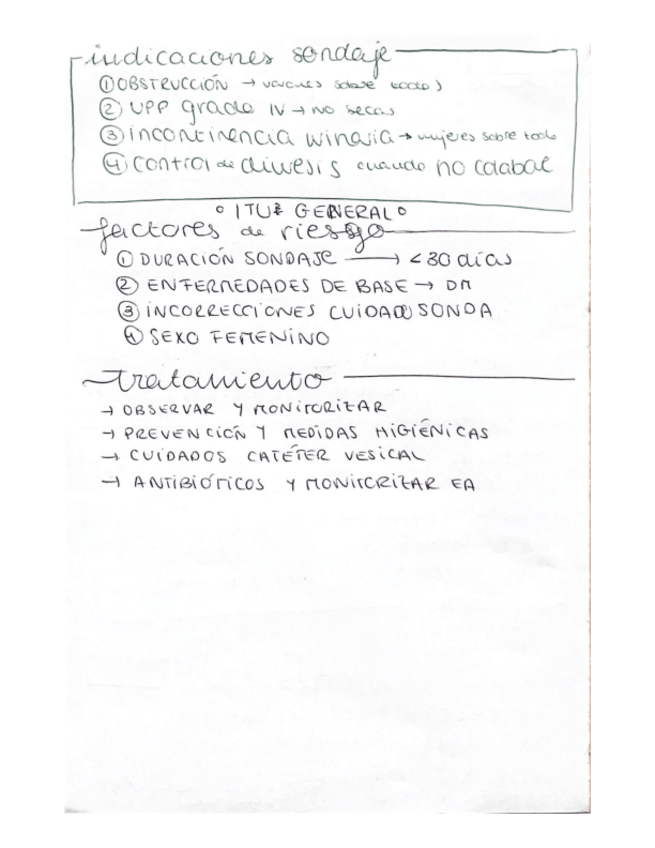 indicaciones sondaje
① OBSTRUCCIÓN → varones sobre todo)
② UPP grado IV → no secas
③ incontinencia urinaria → mujeres sobre todo
④ control de diuresis cuando no colabal
° ITU GENERAL °
factores de riesgo
① DURACIÓN SONDAJE → < 30 días
② ENFERMEDADES DE BASE → DM
③ INCORRECCIONES CUIDADO SONDA
④ SEXO FEMENINO
tratamiento
→ OBSERVAR Y MONITORIZAR
→ PREVENCIÓN Y MEDIDAS HIGIÉNICAS
→ CUIDADOS CATÉTER VESICAL
→ ANTIBIÓTICOS Y MONITORIZAR EA